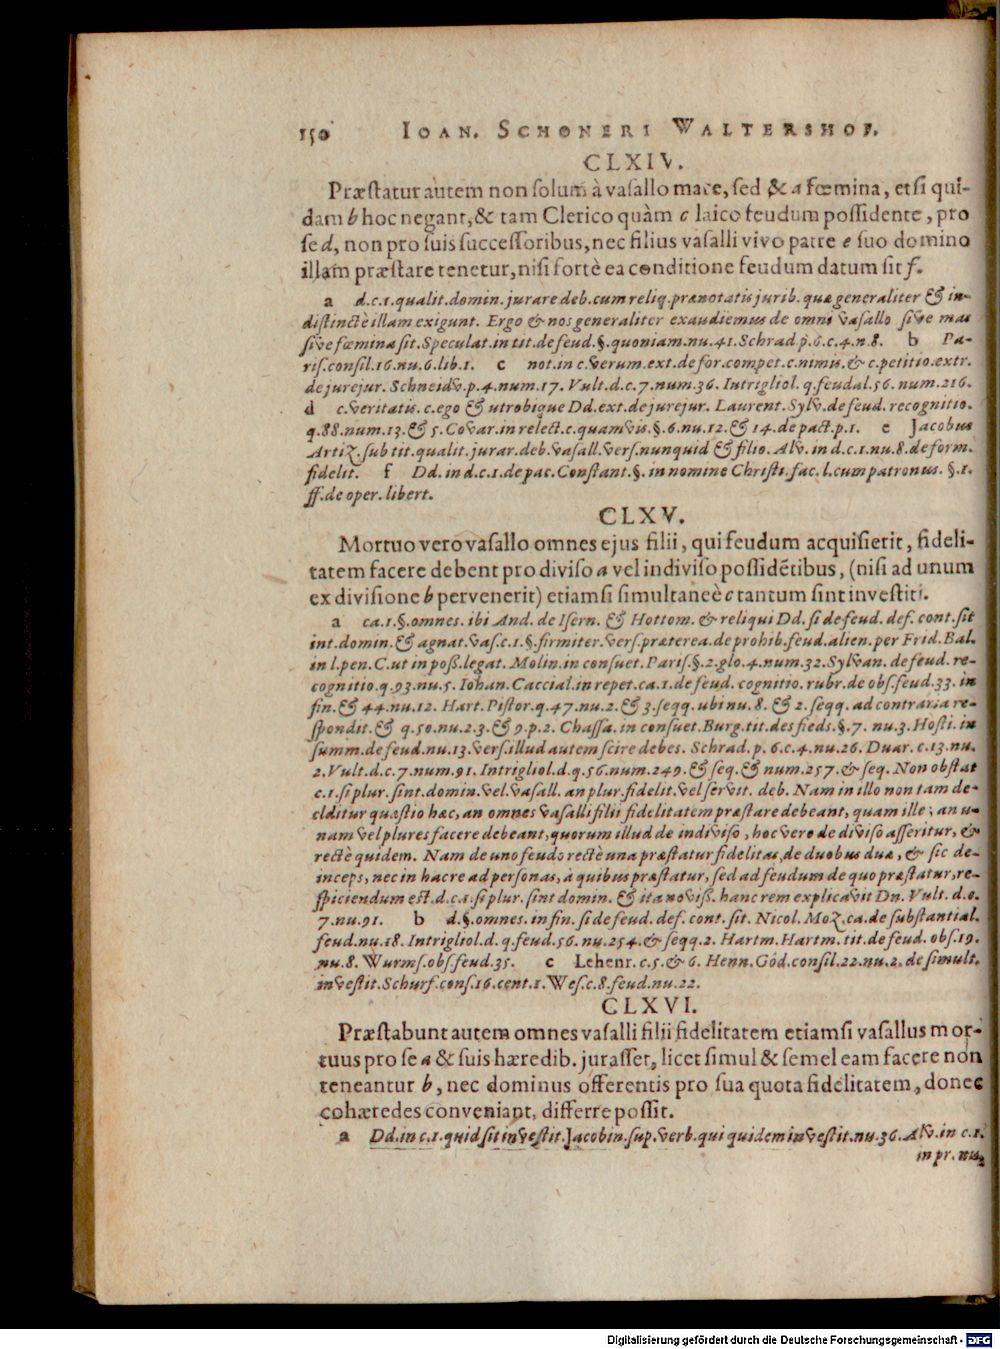 150 IOAN. SCHONERI WALTERSHOF.
CLXIV.
Præstatur autem non solum à vasallo mare, sed & a fœmina, etsi qui-
dam b hoc negant, & tam Clerico quàm c laico feudum possidente, pro
se d, non pro suis successoribus, nec filius vasalli vivo patre e suo domino
illam præstare tenetur, nisi fortè ea conditione feudum datum sit f.
a d.c.1. qualit. domin. jurare deb. cum reliq. prænotatis jurib. quæ generaliter & in-
distinctè illam exigunt. Ergo & nos generaliter exaudiemus de omni vasallo sive mas
sive fœmina sit. Speculat. in tit. de feud. §. quoniam. nu. 41. Schrad p. 6. c. 4. n. 8. b Pa-
ris. consil. 16. nu. 6. lib. 1. c not. in c. verum. ext. de for. compet. c. nimis. & c. petitio. extr.
de jurejur. Schneidv. p. 4. num. 17. Vult. d. c. 7. num. 36. Intrigliol. q. feudal. 56. num. 216.
d c. veritatis. c. ego & utrobique Dd. ext. de jurejur. Laurent. Sylv. de feud. recognitio.
q. 88. num. 13. & 5. Covar. in relect. c. quamvis. §. 6. nu. 12. & 14. de pact. p. 1. e Jacobus
Artiz. sub tit. qualit. jurar. deb. vasall. vers. nunquid & filio. Alv. in d. c. 1. nu. 8. de form.
fidelit. f Dd. in d. c. 1. de pac. Constant. §. in nomine Christi. fac. l. cum patronus. §. 1.
ff. de oper. libert.
CLXV.
Mortuo vero vasallo omnes ejus filii, qui feudum acquisierit, fideli-
tatem facere debent pro diviso a vel indiviso possidētibus, (nisi ad unum
ex divisione b pervenerit) etiamsi simultaneè c tantum sint investiti.
a ca. 1. §. omnes. ibi And. de Isern. & Hottom. & reliqui Dd. si de feud. def. cont. sit
int. domin. & agnat. vas. c. 1. §. firmiter. vers. præterea. de prohib. feud. alien. per Frid. Bal.
in l. pen. C. ut in poss. legat. Molin. in consuet. Paris. §. 2. glo. 4. num. 32. Sylvan. de feud. re-
cognitio. q. 93. nu. 5. Iohan. Caccial. in repet. ca. 1. de feud. cognitio. rubr. de obs. feud. 33. in
fin. & 44. nu. 12. Hart. Pistor. q. 47. nu. 2. & 3. seqq. ubi nu. 8. & 2. seqq. ad contraria re-
spondit. & q. 50. nu. 2. 3. & 9. p. 2. Chassa. in consuet. Burg. tit. des fieds. §. 7. nu. 3. Hosti. in
summ. de feud. nu. 13. vers. illud autem scire debes. Schrad. p. 6. c. 4. nu. 26. Duar. c. 13. nu.
2. Vult. d. c. 7. num. 91. Intrigliol. d. q. 56. num. 249. & seq. & num. 257. & seq. Non obstat
c. 1. si plur. sint. domin. vel. vasall. an plur. fidelit. vel servit. deb. Nam in illo non tam de-
clditur quæstio hæc, an omnes vasalli filii fidelitatem præstare debeant, quam ille; an u-
nam vel plures facere debeant, quorum illud de indiviso, hoc vero de diviso asseritur, &
rectè quidem. Nam de uno feudo rectè una præstatur fidelitas, de duobus duæ, & sic de-
inceps, nec in hac re ad personas, à quibus præstatur, sed ad feudum de quo præstatur, re-
spiciendum est. d. c. 1. si plur. sint domin. & ita noviss. hanc rem explicavit Dn. Vult. d. c.
7. nu. 91. b d. §. omnes. in fin. si de feud. def. cont. sit. Nicol. Moz. ca. de substantial.
feud. nu. 18. Intrigliol. d. q. feud. 56. nu. 254. & seqq. 2. Hartm. Hartm. tit. de feud. obs. 19.
nu. 8. Wurms. obs. feud. 35. c Lehenr. c. 5. & 6. Henn. Göd. consil. 22. nu. 2. de simult.
investit. Schurf. cons. 16. cent. 1. Wes. c. 8. feud. nu. 22.
CLXVI.
Præstabunt autem omnes vasalli filii fidelitatem etiamsi vasallus mor-
tuus pro se a & suis hæredib. jurasset, licet simul & semel eam facere non
teneantur b, nec dominus offerentis pro sua quota fidelitatem, donec
cohæredes conveniant, differre possit.
a Dd. in c. 1. quid sit investit. Jacobin. sup. verb. qui quidem investit. nu. 36. Alv. in c. 1.
in pr. nu.
Digitalisierung gefördert durch die Deutsche Forschungsgemeinschaft - DFG